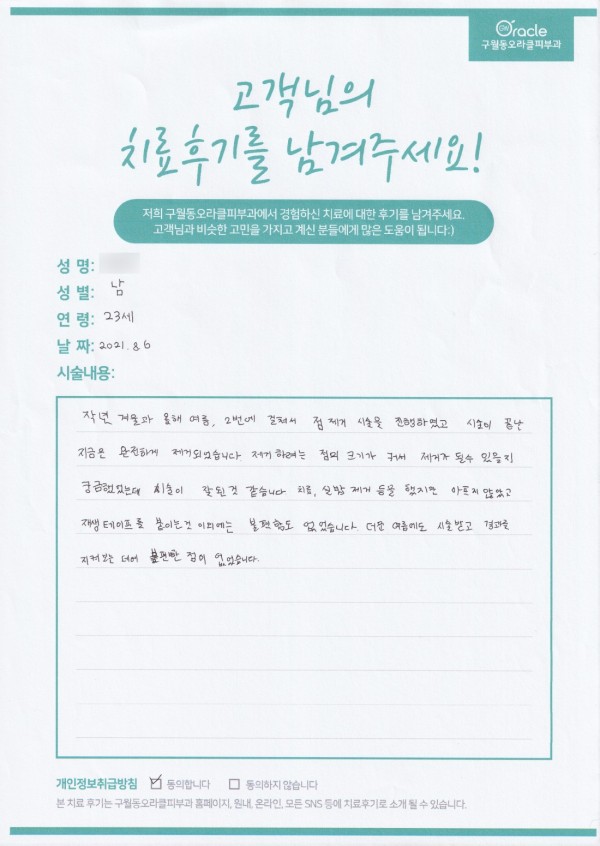 Oracle
구월동오라클피부과
고객님의
치료후기를 남겨주세요!
저희 구월동오라클피부과에서 경험하신 치료에 대한 후기를 남겨주세요.
고객님과 비슷한 고민을 가지고 계신 분들에게 많은 도움이 됩니다:)
성 명:
성 별: 남
연 령: 23세
날 짜: 2021. 8.6
시술내용:
작년 겨울과 올해 여름, 2번에 걸쳐서 점제거 시술을 진행하였고 시술이 끝난
지금은 완전하게 제거되었습니다. 제거하려는 점의 크기가 커서 제거가 될수 있을지
궁금했었는데 시술이 잘된것 같습니다 치료, 실밥 제거 등을 했지만 아프지 않았고
재생테이프를 붙이는것 이외에는 불편함도 없었습니다. 더운 여름에도 시술받고 경과를
지켜보는 데에 불편한 점이 없었습니다.
개인정보취급방침 동의합니다 동의하지 않습니다
본 치료 후기는 구월동오라클피부과 홈페이지, 원내, 온라인, 모든 SNS 등에 치료후기로 소개 될 수 있습니다.